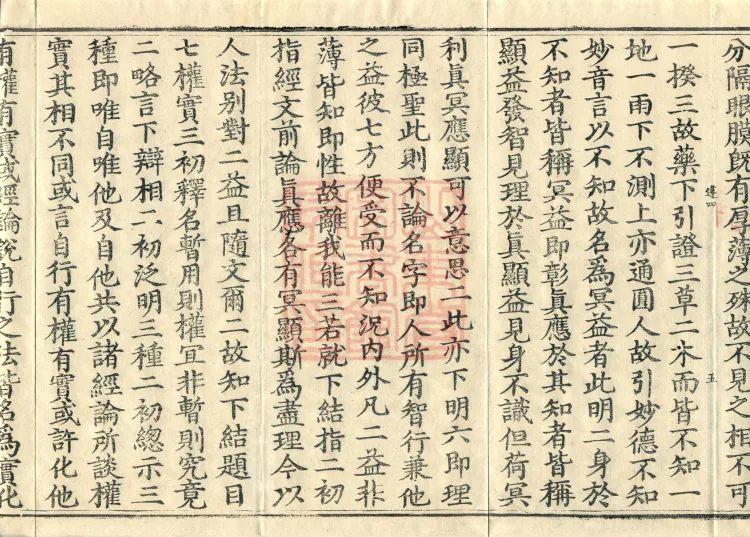 分隔眼膜既有厚薄之殊故不見之相不可
一揆三故藥下引證三草二木而皆不知一
地一雨下不測上亦通圓人故引妙德不知
妙音言以不知故名爲冥益者此明二身於
不知者皆稱冥益即彰眞應於其知者皆稱
顯益發智見理於眞顯益見身不識但荷冥
利眞冥應顯可以意思二此亦下明六即理
同極聖此則不論名字即人所有智行兼他
之益彼七方便受而不知況内外凡二益非
薄皆知即性故離我能三若就下結指二初
指經文前論眞應各有冥顯斯爲盡理今以
人法别對二益且隨文爾二故知下結題目
七權實三初釋名暫用則權宜非暫則究竟
二略言下辯相二初泛明三種二初總示三
種即唯自唯他及自他共以諸經論所談權
實其相不同或言自行有權有實或許化他
有權有實或經論說自行之法皆名爲實化